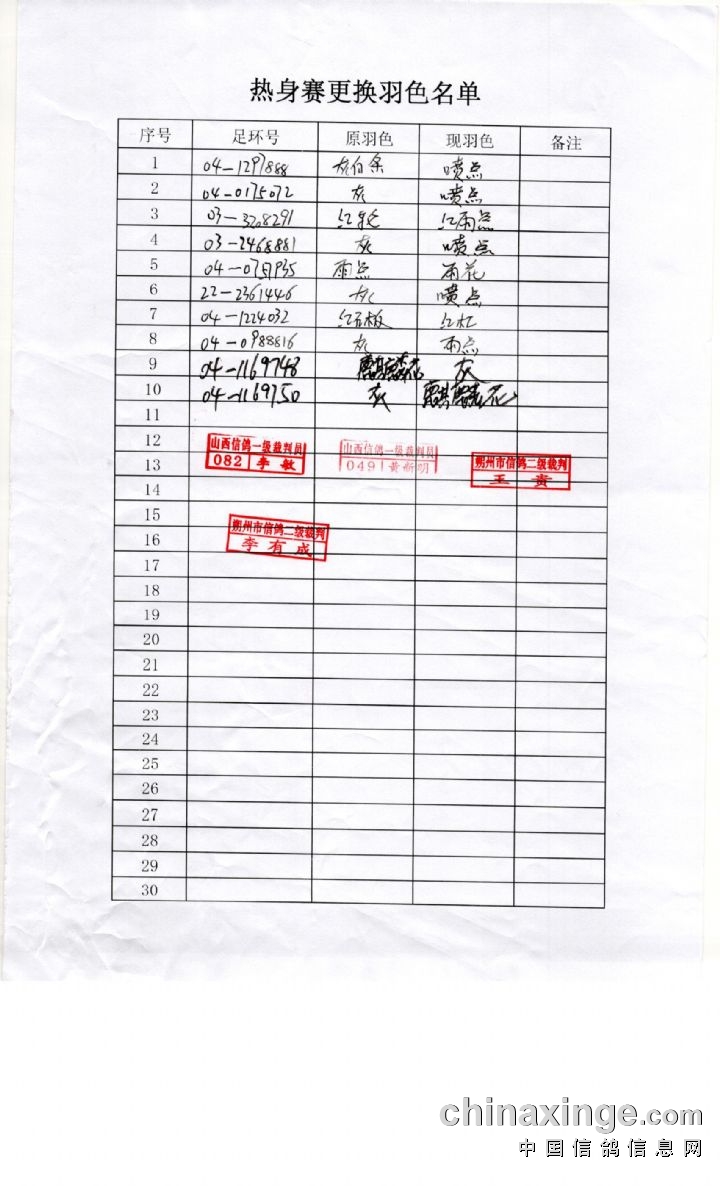 热身赛更换羽色名单
序号 足环号 原羽色 现羽色 备注
1 04-1297888 灰白条 喷点
2 04-0175072 灰 喷点
3 03-3208291 红轮 红雨点
4 03-2468881 灰 喷点
5 04-0757935 雨点 雨花
6 22-2361446 灰 喷点
7 04-1224032 红石板 红杠
8 04-0988816 灰 雨点
9 04-1169748 麒麟花 灰
10 04-1169750 灰 麒麟花
11
12
13
14
15
16
17
18
19
20
21
22
23
24
25
26
27
28
29
30
山西信鸽一级裁判员
082 李敏
山西信鸽一级裁判员
0491 黄新明
朔州市信鸽二级裁判
王贵
朔州市信鸽二级裁判
李有成
chinaxinge.com
中国信鸽信息网